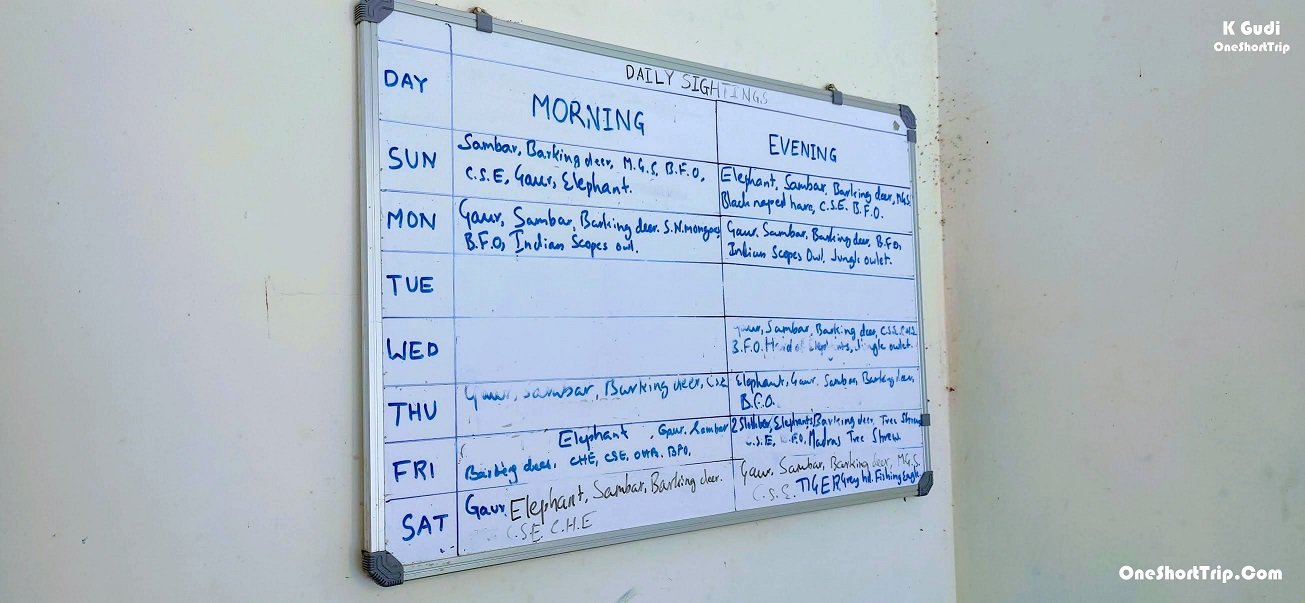 K Gudi
OneShortTrip
DAILY SIGHTINGS
DAY
MORNING
EVENING
SUN
Sambar, Barking deer, M.G.S, B.F.O,
C.S.E, Gaur, Elephant.
Elephant, Sambar, Barking deer, M.G.S
Black naped hare, C.S.E. B.F.O.
MON
Gaur, Sambar, Barking deer. S.N.mongoos
B.F.O, Indian Scopes owl.
Gaur. Sambar. Barking deer, B.F.O,
Indian Scopes Owl. Jungle owlet.
TUE
WED
Gaur, Sambar, Barking deer, C.S.E.
B.F.O. Herd of Jungle owlet.
THU
Gaur, Sambar, Barking deer, C.S.E
Elephant, Gaur. Sambar, Barking deer,
B.F.O.
FRI
Elephant, Gaur. Sambar
Barking deer. CHE, CSE, BFO,
2 Slothbear, Elephants, Barking deer, Tree Shrew
C.S.E, Madras Tree Shrew
SAT
Gaur. Elephant, Sambar, Barking deer.
C.S.E. C.H.E
Gaur. Sambar, Barking deer, M.G.S.
C.S.E. TIGER Grey hd. Fishing Eagle
OneShortTrip.Com